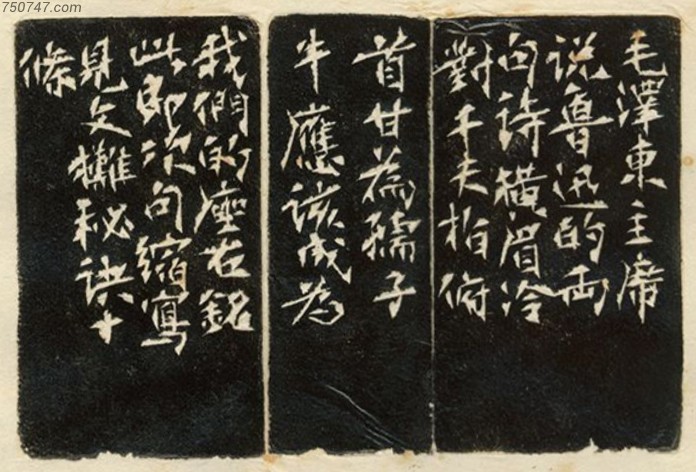 750747.com
毛澤東主席
说魯迅的両
句诗橫眉冷
對千夫指俯
首甘為孺子
牛應该成為
我們的座右銘
此即次句縮寫
見文秘诀十
條